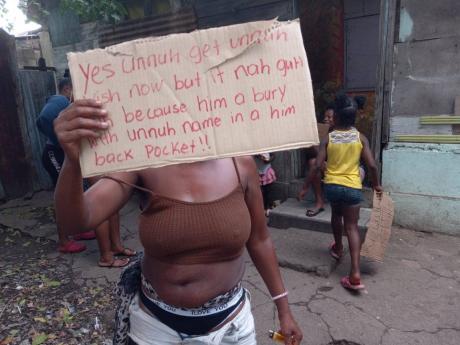 Yes Unnuh get unnuh
wish now but it nah guh
because him a bury
with unnuh name in a him
back Pocket!!
I LOVE YOU